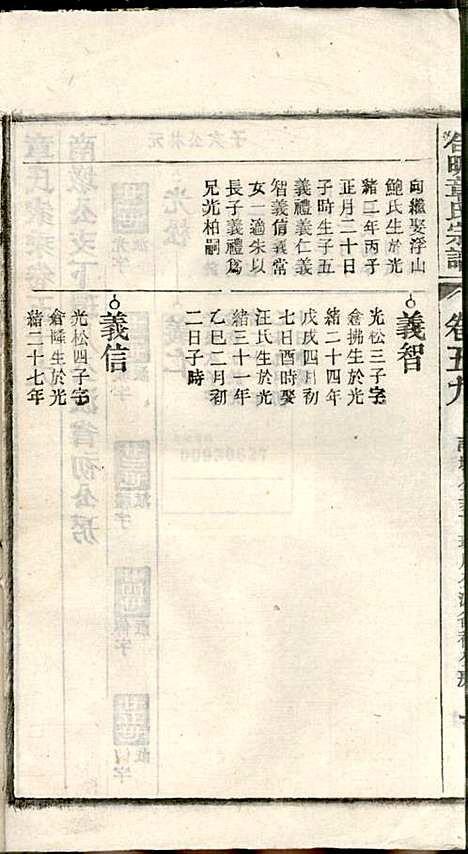 童氏宗譜
卷五九
向繼娶浮山
鮑氏生於光
緒二年丙子
正月二十日
子時生子五
義禮義仁義
智義信義常
女一適朱以
長子義禮為
兄光柏嗣
義智
光松三子字
倉拂生於光
緒二十四年
戊戌四月初
七日酉時娶
汪氏生於光
緒三十一年
乙巳二月初
二日子時
義信
光松四子字
倉隆生於光
緒二十七年